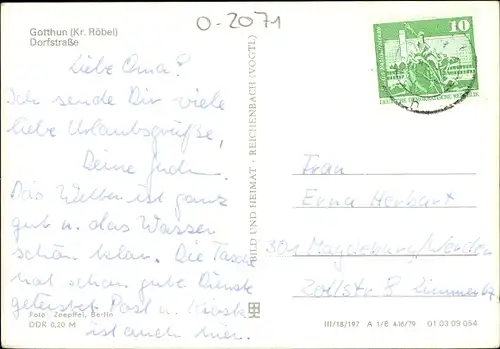 O-2071
Gotthun (Kr. Röbel)
Dorfstraße
Liebe Oma!
Ich sende Dir viele
liebe Urlaubsgrüße,
Deine
Das Wetter ist ganz
gut u. das Wasser
schön klar. Die Tasche
hat schon gute Dienste
geleistet. Post u. Kiosk
ist auch hier.
Foto Zoepffel, Berlin
DDR 0,20 M
BILD UND HEIMAT · REICHENBACH (VOGTL)
10
Frau
Erna Herbart
301 Magdeburg/Norden
8
III/18/197 A 1/8 4-16/79 01 03 09 054